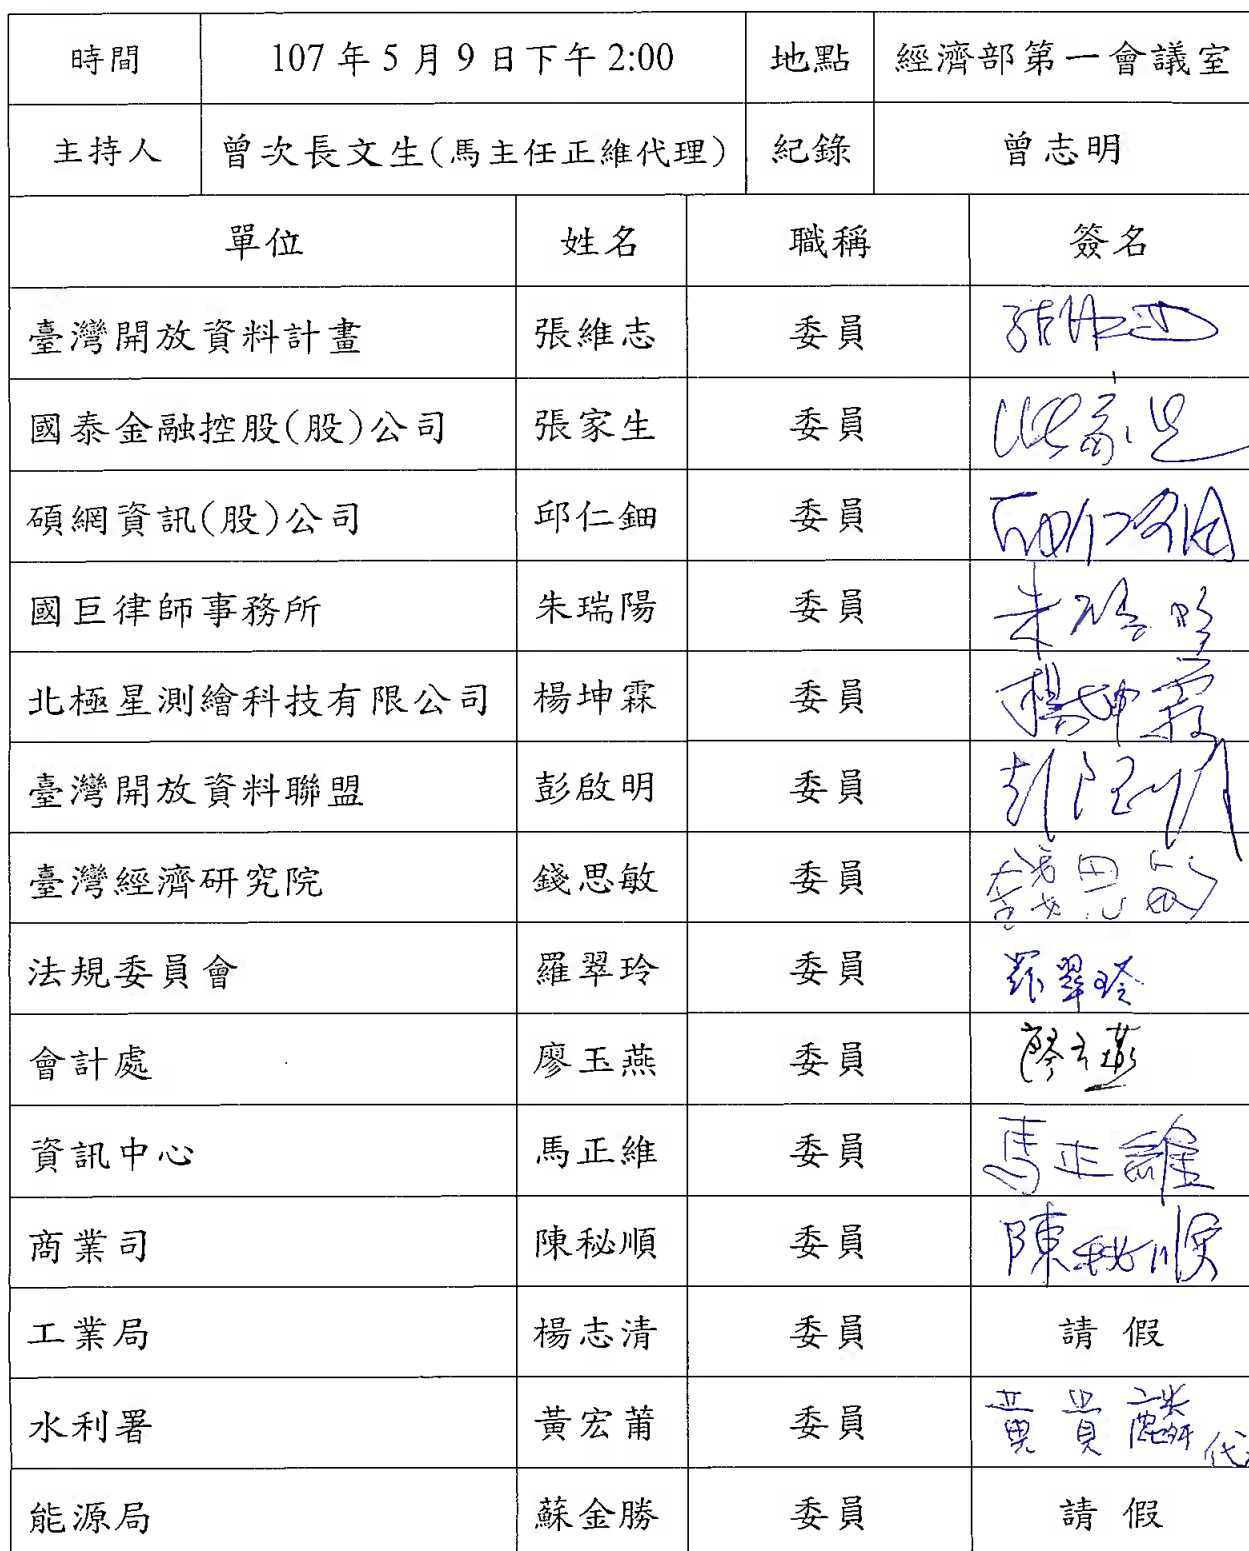 時間 107年5月9日下午2:00 地點 經濟部第一會議室
主持人 曾次長文生(馬主任正維代理) 紀錄 曾志明
單位 姓名 職稱 簽名
臺灣開放資料計畫 張維志 委員 張維志
國泰金融控股(股)公司 張家生 委員 張家生
碩網資訊(股)公司 邱仁鈿 委員 邱仁鈿
國巨律師事務所 朱瑞陽 委員 朱瑞陽
北極星測繪科技有限公司 楊坤霖 委員 楊坤霖
臺灣開放資料聯盟 彭啟明 委員 彭啟明
臺灣經濟研究院 錢思敏 委員 錢思敏
法規委員會 羅翠玲 委員 羅翠玲
會計處 廖玉燕 委員 廖玉燕
資訊中心 馬正維 委員 馬正維
商業司 陳秘順 委員 陳秘順
工業局 楊志清 委員 請假
水利署 黃宏莆 委員 黃貴麟代
能源局 蘇金勝 委員 請假